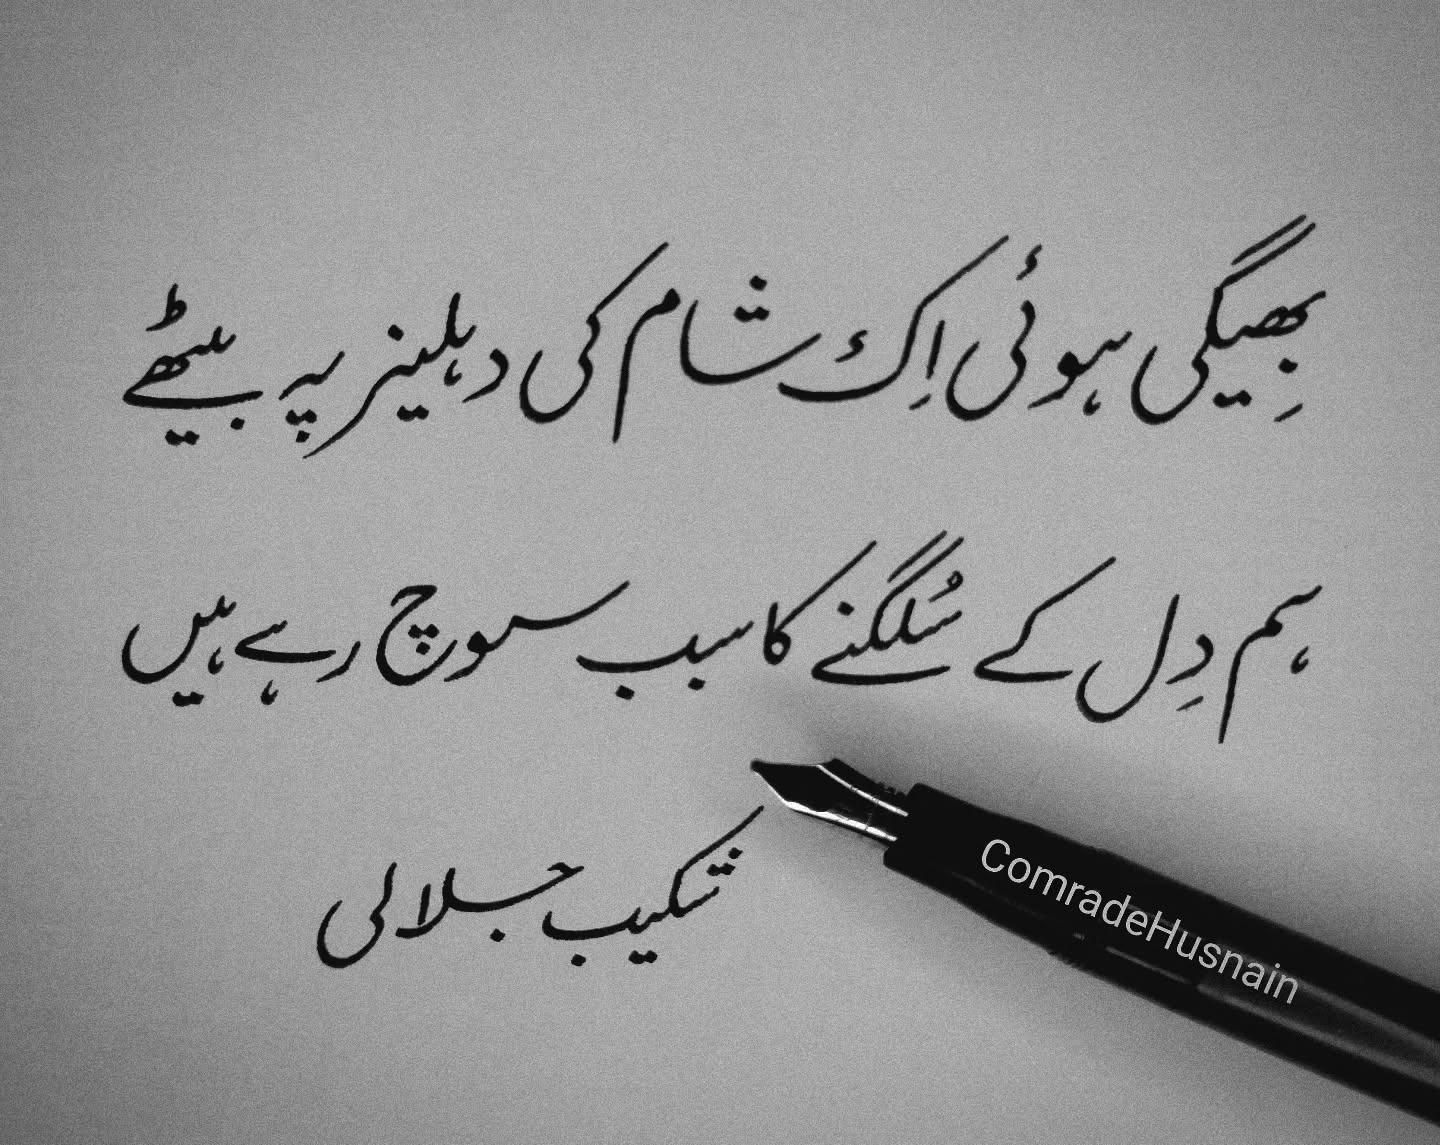 بھِیگی ہوئی اِک شام کی دہلیز پہ بیٹھے
ہم دِل کے سُلگنے کا سبب سوچ رہے ہیں
شکیب جلالی
ComradeHusnain